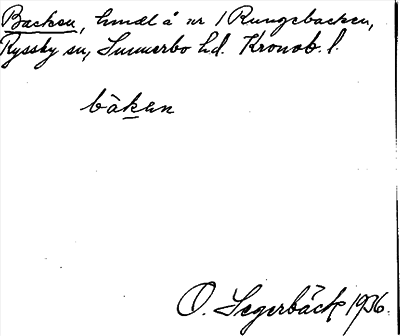 Backen, hmdl å nr 1 Rungebacken,
Ryssby sn, Sunnerbo hd. Kronob. l.
bàkən
O. Segerbäck 1936.